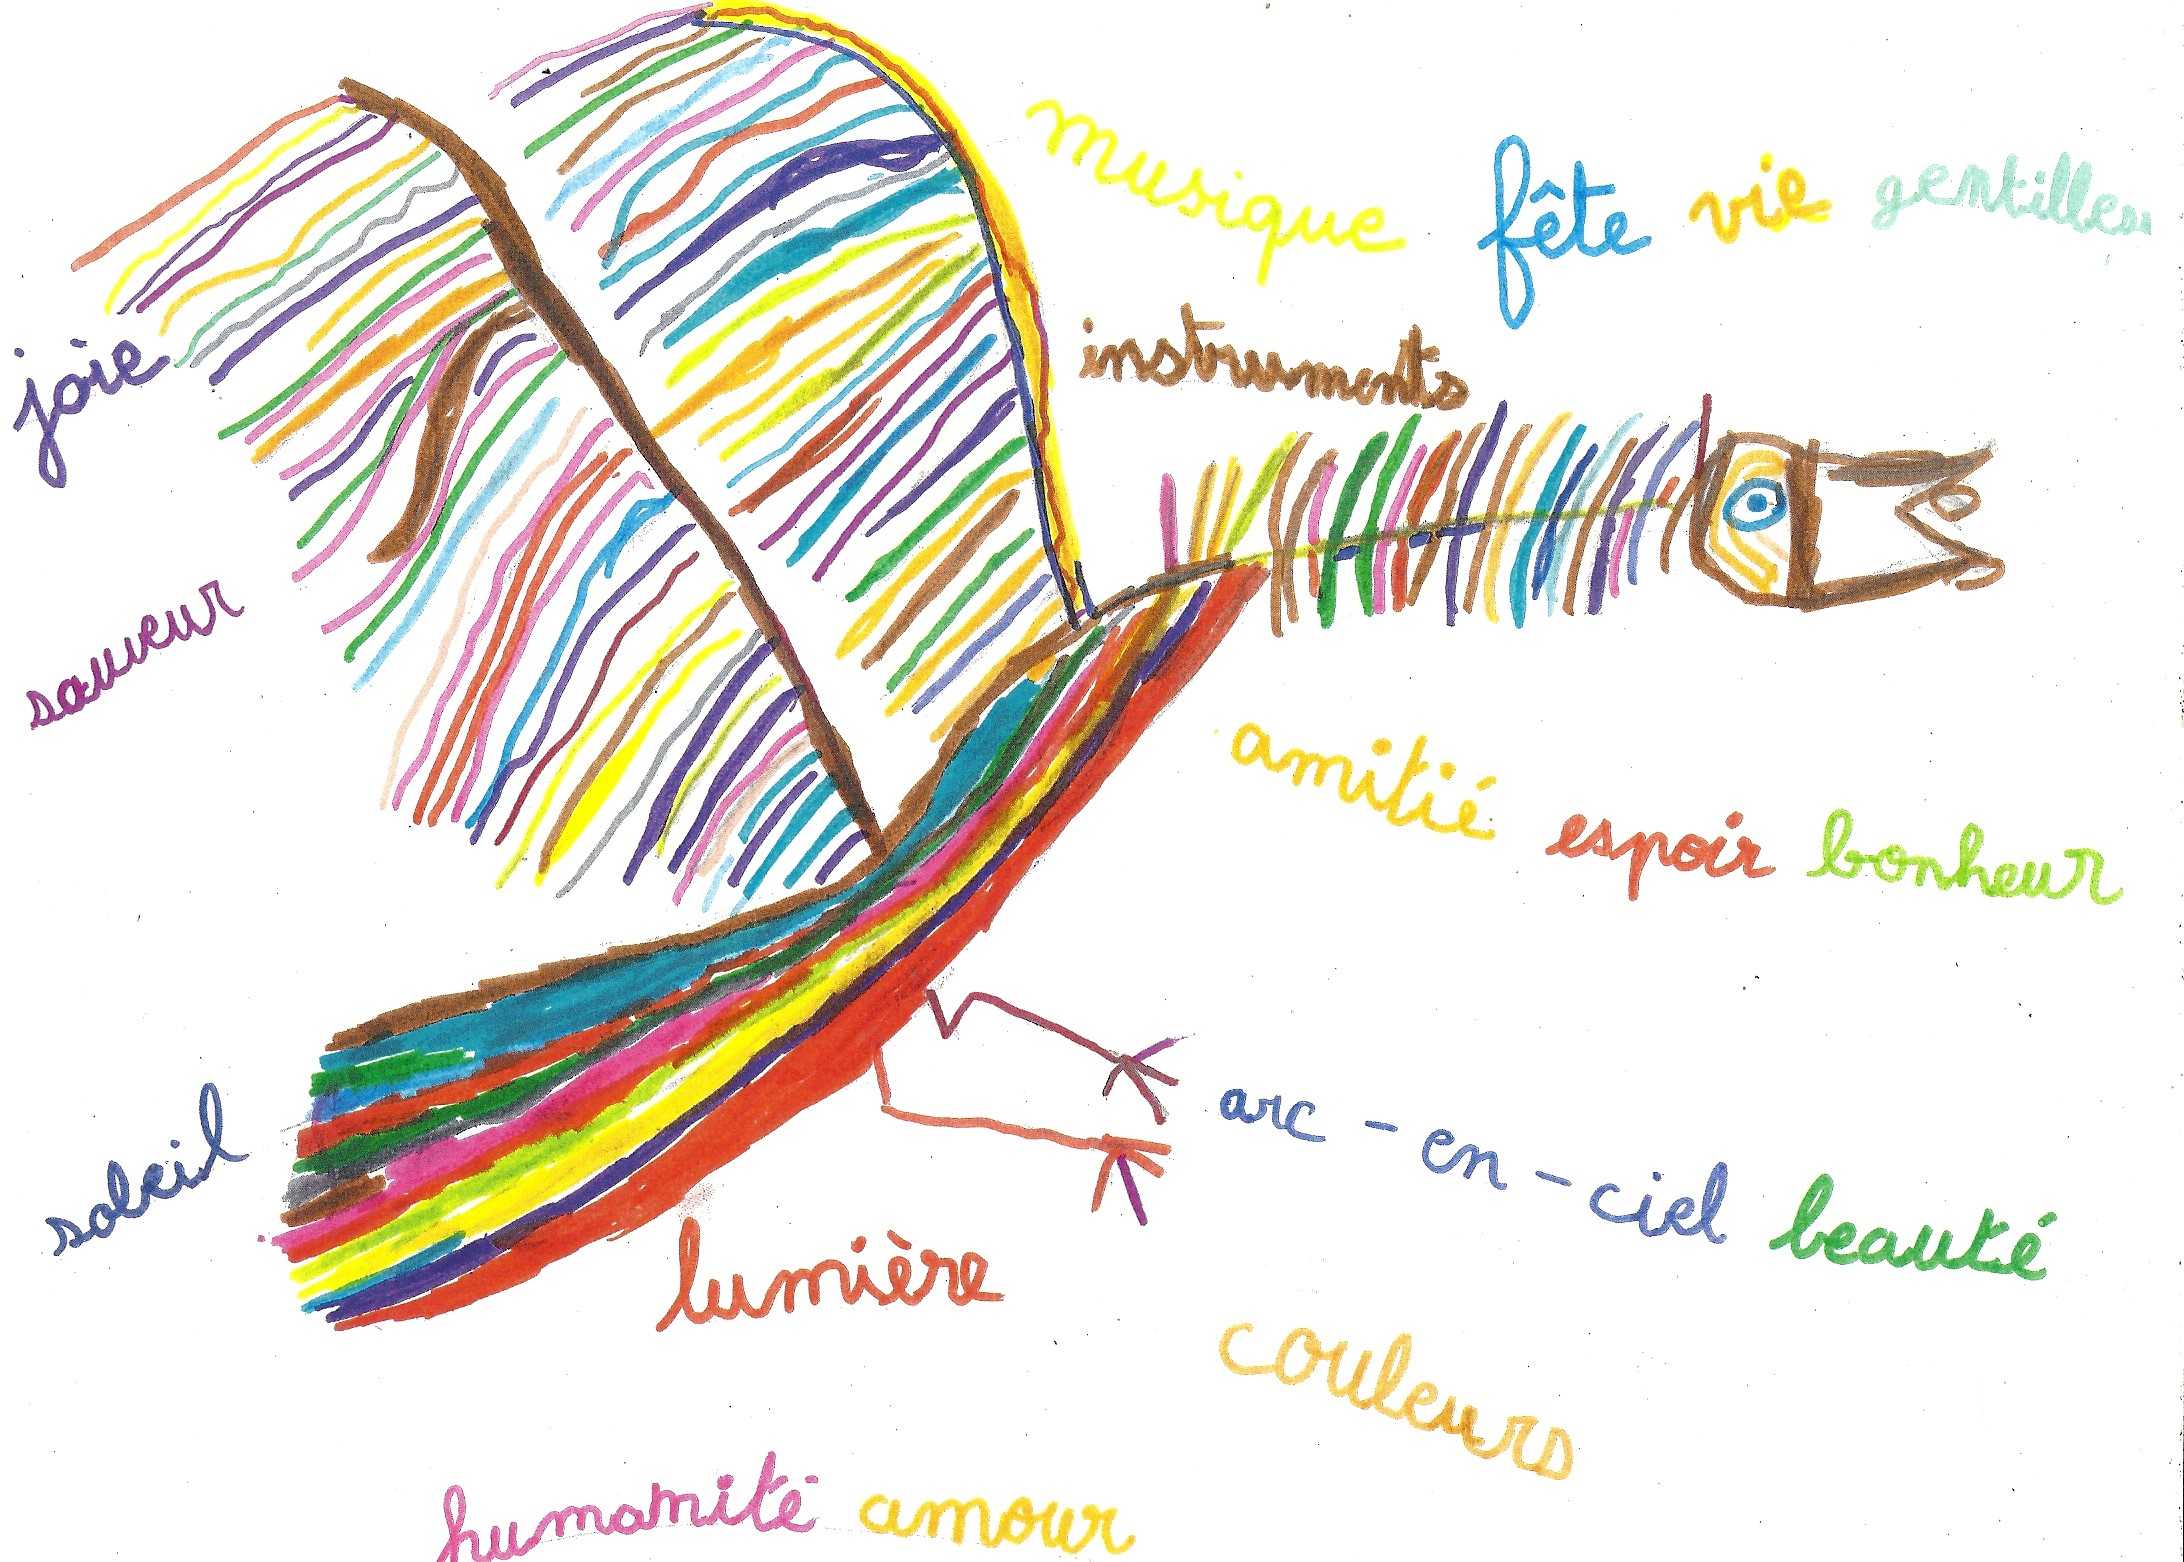 musique fête vie gentilles
instruments
joie
sauveur
amitié espoir bonheur
soleil
arc-en-ciel beauté
lumière
couleurs
humanité amour